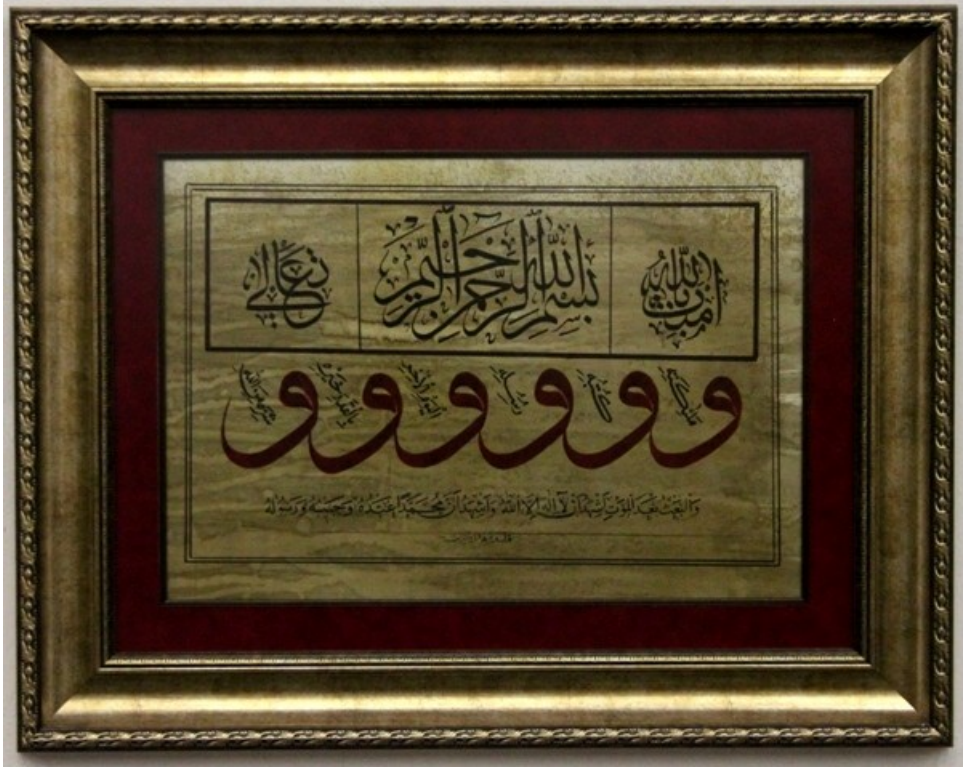 امنت بالله
بسم الله الرحمن الرحيم
تعالى
و ملئكته و كتبه و رسله و اليوم الاخر و بالقدر خيره و شره من الله
والبعث بعد الموت اشهد ان لا اله الا الله واشهد ان محمدا عبده وحبيبه ورسوله